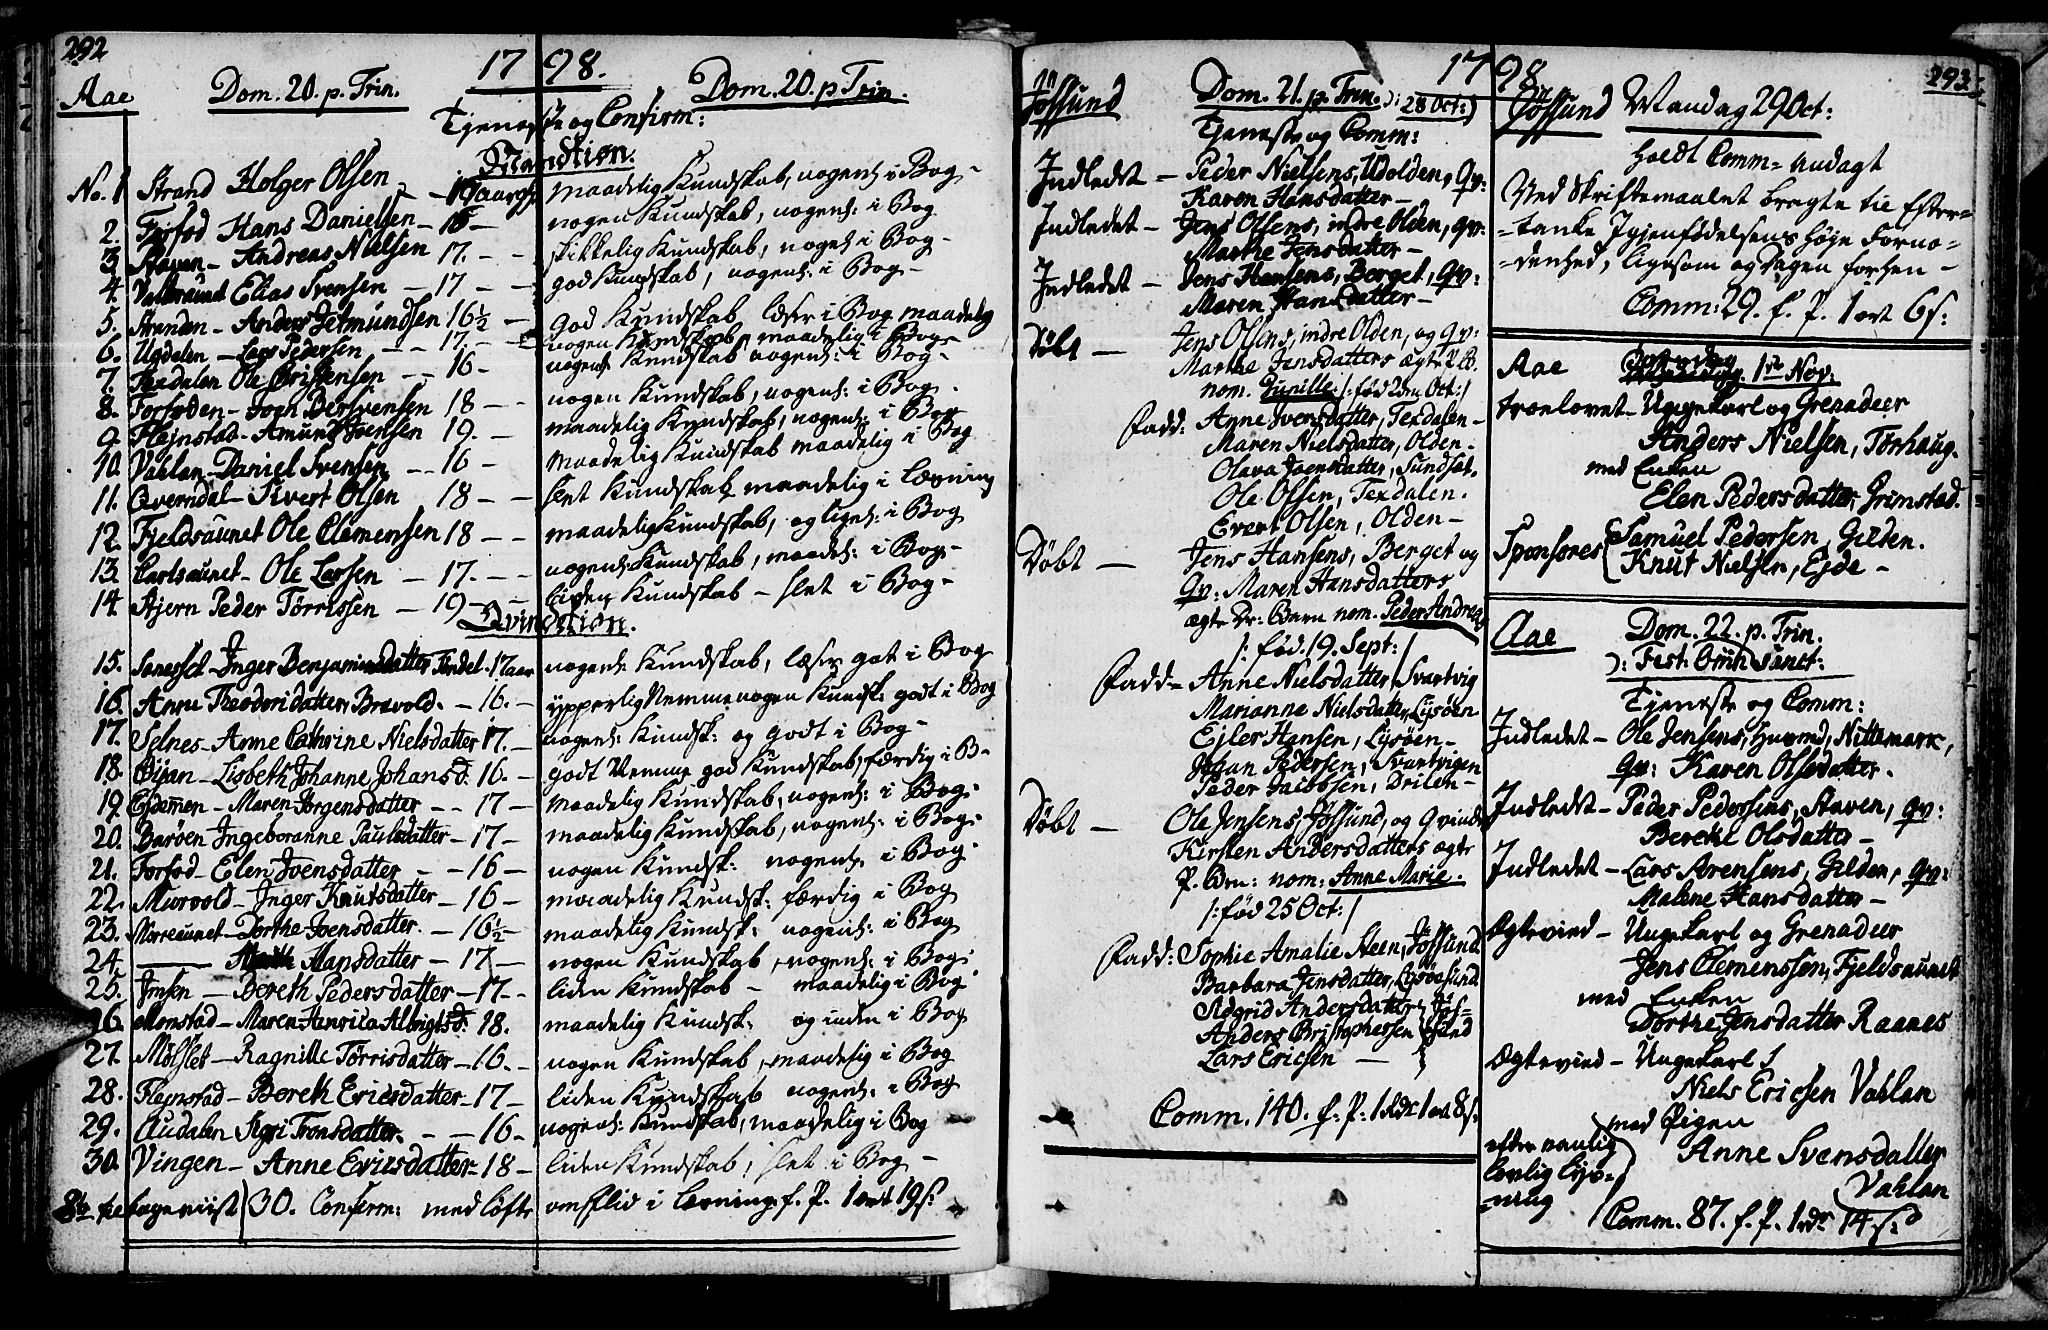 292
1798.
Aae
Dom. 20. p. Trin.
Dom. 20. p Trin.
Tjeneste og Confirm:
No. 1 Strand Holger Olsen — 19 aar maadelig Kundskab, nogenl: i Bog —
2. Forfod Hans Danielsen — 18 — nogen Kundskab, nogenl: i Bog
3. Staven — Andreas Nielsen 17. — — skikkelig Kundskab, nogenl: i Bog —
4. Elias Svensen — 17 — — god Kundskab, nogenl: i Bog —
5. Stranden — Anders Jetmundsen 16½ — god Kundskab læser i Bog maadelig
6. Ugdalen — Lars Pedersen — — 17. — nogen Kundskab, maadelig i Bog —
7. Texdalen Ole Cristensen — — 16 — nogenl: Kundskab nogenl: i Bog —
8. Forfoden — Joen Bersvensen 18 — — nogen Kundskab, nogenl: i Bog.
9. Flejnstad — Amund Joensen 19. — maadelig Kundskab, nogenl: i Bog
10. Vahlan — Daniel Svensen — — 16 — maadelig Kundskab maadelig i Bog
11. Qverndal — Sivert Olsen 18 — — slet Kundskab maadelig i Læsning
12. Fjeldsaunet Ole Clemensen 18 — — maadelig Kundskab, og ligel: i Bog
13. Carlsaunet — Ole Larsen — 17. — — nogenl: Kundskab, maadel: i Bog —
14. Stjern Peder Törrissen — 19 — liden Kundskab — slet i Bog —
Qvindkiön.
15. Inger Benjaminsdatter Fendel. 17 aar nogenl: Kundskab, læser got i Bog
16. Anne Theodoridatter, Brevold. — 16. — ypperlig Nemme nogen Kundsk: godt i Bog
17. Selnes — Anne Cathrine Nielsdatter 17. — nogenl: Kundsk: og godt i Bog —
18. Lisbeth Johanne Johansd. 16. — godt Nemme god Kundskab, færdig i B —
19. Maren Jörgensdatter — — 17 — maadelig Kundskab, nogenl: i Bog —
20. Baröen Ingeboranne Paulsdatter — 17 — maadelig Kundskab, nogenl: i Bog —
21. Forfod — Elen Joensdatter — — 16 — nogen Kundsk: nogenl: i Bog.
22. Murvold — Inger Knutsdatter — 16 — maadelig Kundsk: færdig i Bog
23. Norreaunet — Dorthe Joensdatter. — 16½ — maadelig Kundsk: nogenl: i Bog
24. —— Hansdatter — 17 — nogen Kundskab, nogenl: i Bog:
25. Imsen — Bereth Pedersdatter — 17 — — liden Kundskab — maadelig i Bog
26. Monstad — Maren Hanrica Albrigtsd: 18. maadelig Kundsk: og inden i Bog
27. Mölslet — Ragnille Törrisdatter — 16. — nogen Kundskab, maadelig i Bog
28. Flejnstad — Bereth Ericsdatter — 17 — liden Kundskab nogenl: i Bog
29. Audalen Sigri Tronsdatter — — 16 — nogenl: Kundskab, maadelig i Bog
30. Vingen — Anne Ericsdatter — 18 — liden Kundskab, slet i Bog —
30. Confirm: med löfte om flid i Læsning. f. P. 1 ort 19 s:
1798
293
Jössund
Dom. 21. p. Trin. ): 28 Oct:)
Tjeneste og Comm:
Indledet — Peder Nielsens, Udolden, Qv:
Karen Hansdatter —
Indledet — Jens Olsens, indre Olden, qv:
Marthe Jensdatter —
Indledet — Jens Hansens, Berget, Qv:
Maren Hansdatter —
Döbt — Jens Olsens, indre Olden, og Qv:
Marthe Jensdatters ægte P. B.
nom. Gunille. /: föd 2den Oct: /
Fadd: Anne Svensdatter, Texdalen —
Maren Nielsdatter, Olden.
Olava Joensdatter, Sundset.
Ole Olsen, Texdalen.
Evert Olsen, Olden —
Döbt — Jens Hansens, Berget og
Qv: Maren Hansdatters
ægte Dr: Barn nom. Peder Andreas
/: föd. 19. Sept: /
Fadd — Anne Nielsdatter Svartvig
Marianne Nielsdatter, Lysöen
Ejler Hansen, Lysöen —
Johan Pedersen, Svartvigen
Peder Jacobsen, Drilen —
Döbt — Ole Jensens, Jössund, og Qvinde
Kirsten Andersdatters ægte
P. Bn: nom: Anne Marie.
/: föd 25 Oct: /
Fadd: Sophie Amalie Steen, Jössund.
Barbara Jensdatter, Lysöesund
Sidgrid Andersdatter Jös-
Anders Cristophersen sund
Lars Ericsen —
Comm. 140. f. P. 1 Rdr 1 ort 8 s.
Jössund Mandag 29 Oct:
holdt Comm = andagt
Ved Skriftemaalet bragte til Efter-
= tanke Igjenfödelsens höje Fornö-
= denhed, ligesom og dagen forhen —
Comm: 29. f. P. 1 ort 6 s:
Aae 1ste Nov:
trolovet — Ungekarl og Grenadeer
Anders Nielsen, Törhaug.
med Enken
Elen Pedersdatter, Grimstad.
Sponsores Samuel Pedersen, Gilden.
Knut Nielsen, Ejde —
Aae
Dom. 22. p. Trin.
): Fest: Omn: Sanct:
Tjeneste og Comm:
Indledet — Ole Jensens, Huusmd, Nittemark,
Qv: Karen Olsdatter.
Indledet — Peder Pedersens, Staven, qv:
Berethe Olsdatter —
Indledet — Lars Arensens, Gilden, qv:
Malene Hansdatter —
Ægteviet — Ungekarl og Grenadeer
Jens Clemenssen, Fjeldsaunet
med Enken
Dorthe Jensdatter Raanes
Ægteviet — Ungekarl
Niels Ericsen Vahlan
med Pigen
Anne Svensdatter
Vahlan
efter vanlig
lovlig Lys-
ning
Comm. 87. f. P. 1 rdr 14 s: